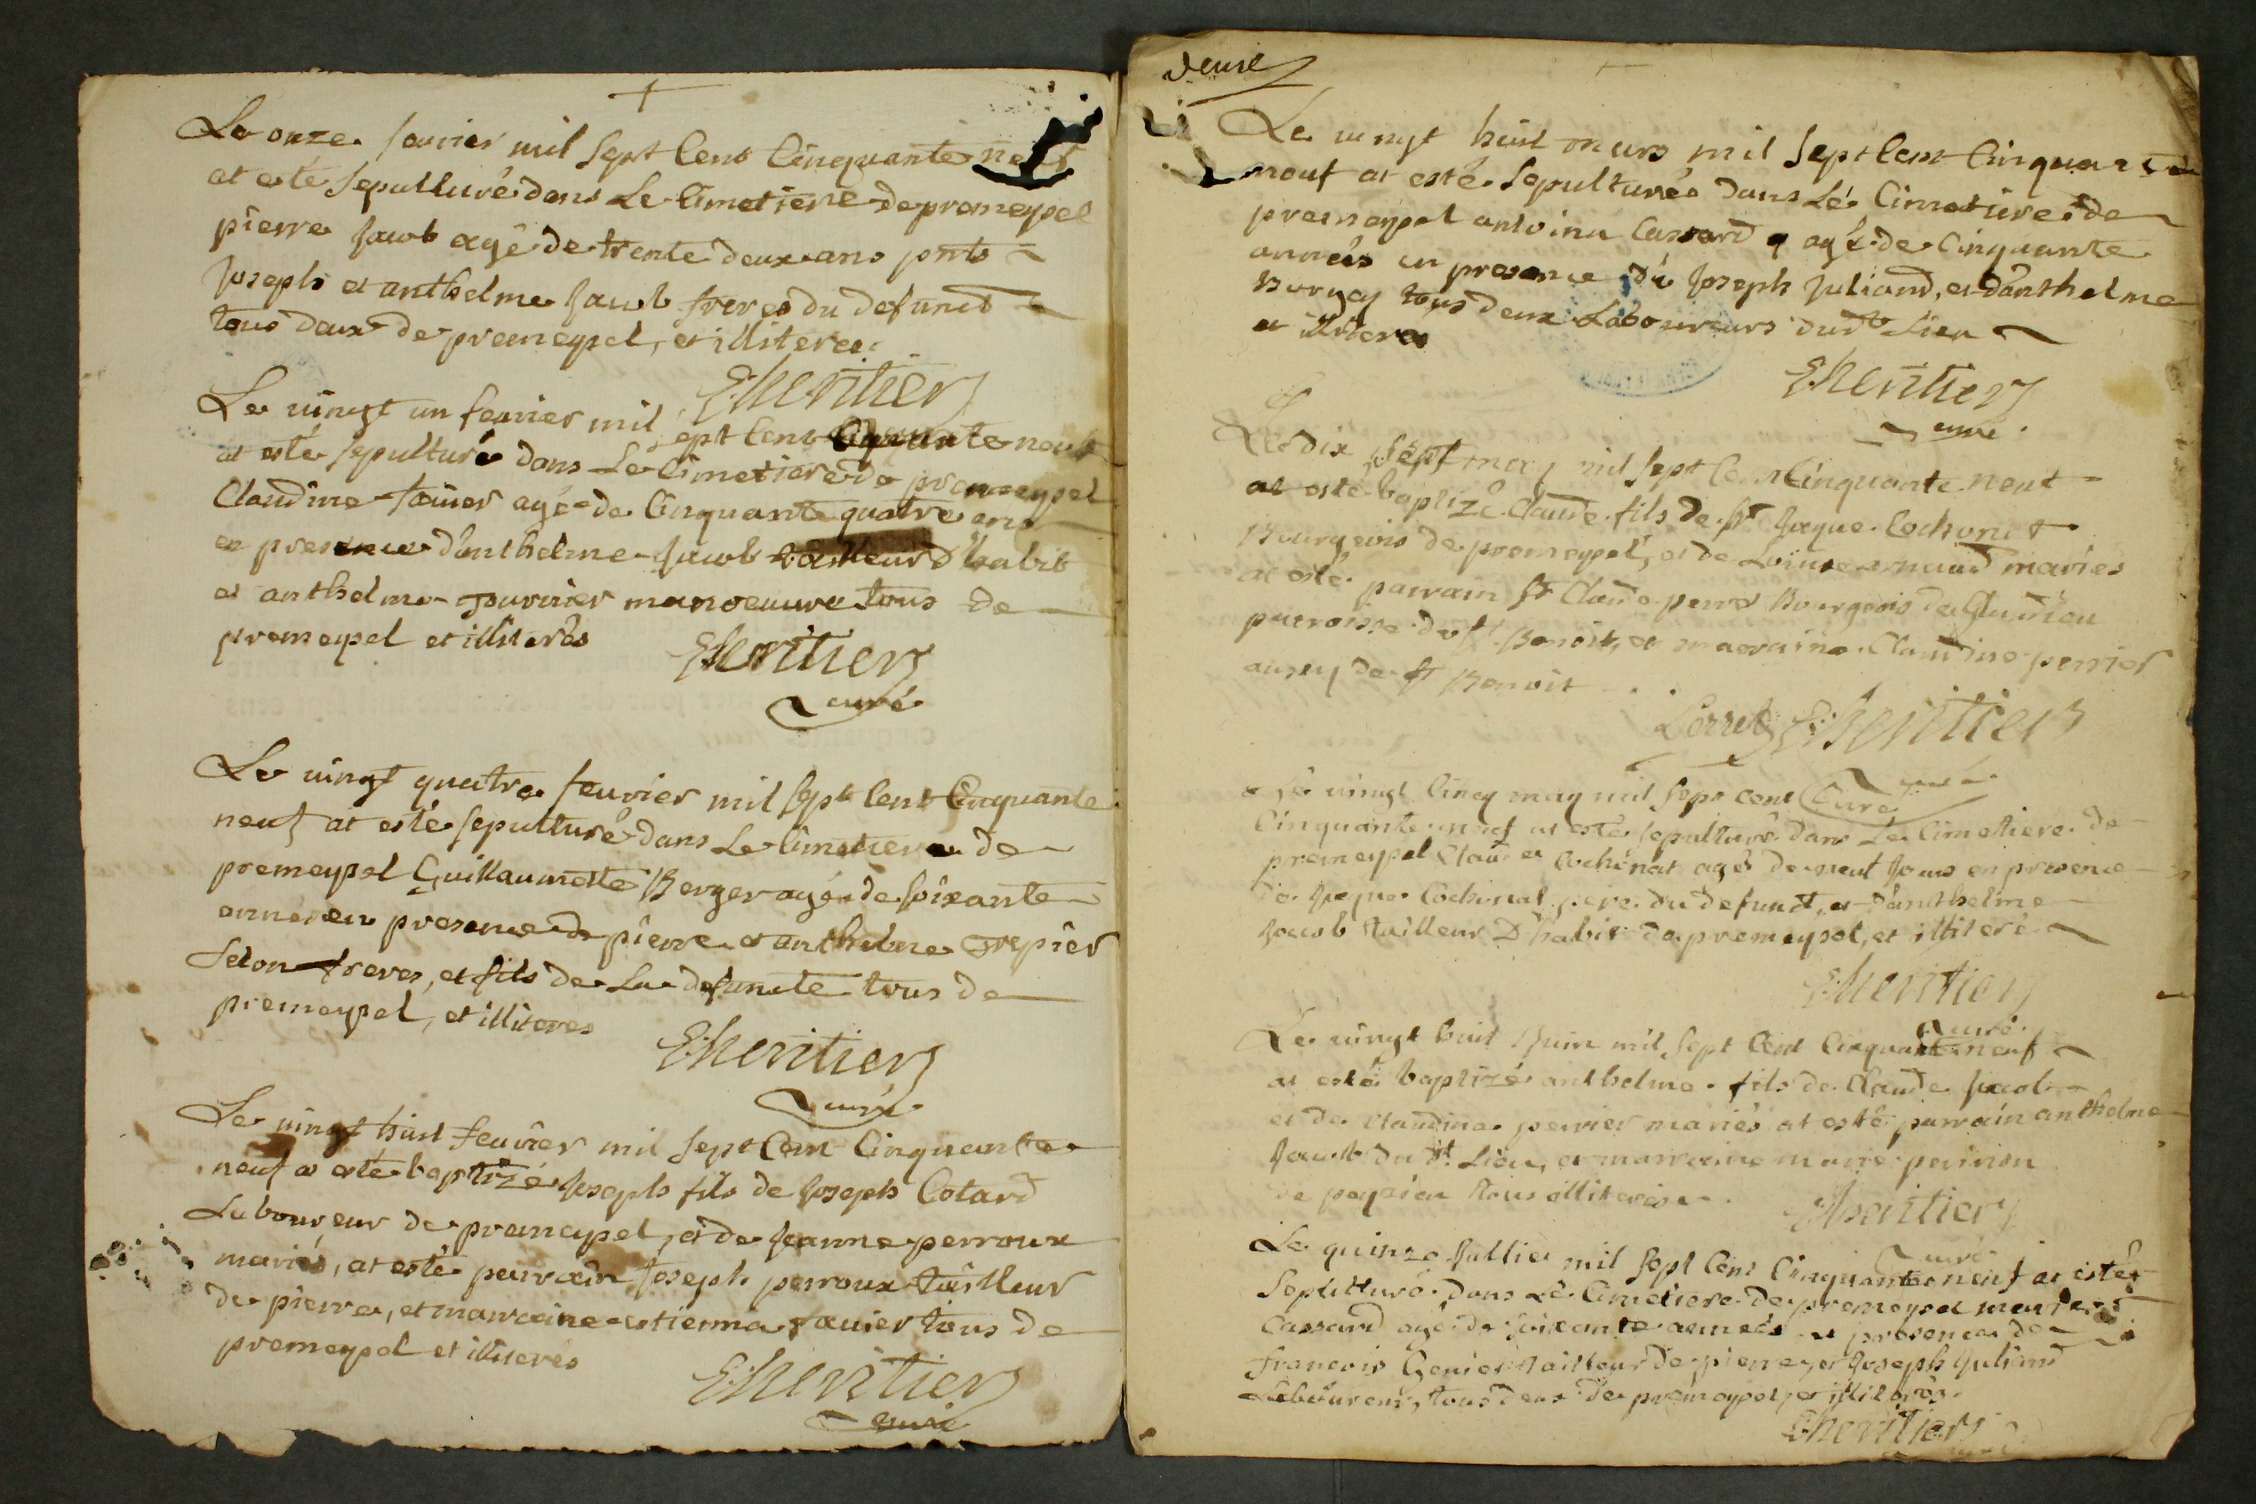 Le onze favrier mil sept Cent Cinquante neuf
at esté sepulturé dans Le Cimetiere de premeysel
pierre Jacob agé de trente deux ans pnts
Joseph et anthelme Jacob freres du defunct
tous deux de premeysel, et illiteres
E: heritier
Le vingt un fevrier mil sept Cent Cinquante neuf
at esté sepulturé dans Le Cimetiere de premeysel
Claudine agé de Cinquante quatre ans
en presence d'anthelme Jacob tailleur d'habit
et anthelme manoeuvre tous de
premeysel et illiterés
E: heritier
curé
Le vingt quatre feuvrier mil sept Cent Cinquante
neuf at esté sepulturé dans Le Cimetiere de
premeysel Guillaumette Berger agé de soixante
années en presence de pierre et anthelme Trepier
Selon freres, et fils de La defuncte tous de
premeysel, et illiteres
E: heritier
curé
Le vingt huit feuvrier mil sept Cent Cinquante
neuf at esté baptizé Joseph fils de Joseph Cotard
Laboureur de premeysel, et de Jeanne perroux
mariés, at esté parrain Joseph perroux tailleur
de pierre, et marraine estienna tous de
premeysel et illiterés
E: heritier
curé
deuxe
Le vingt huit mars mil sept Cent Cinquante
neuf at esté sepulturée dans Lé Cimetiere de
premeysel antoina Cassard agé de Cinquante
années en presence de Joseph Juliand, et d'anthelme
tous deux Laboureurs dudt Lieu
et illiteres
E: heritier
curé
Le dix sept may mil sept Cent Cinquante neuf
at esté baptizé Claude fils de sr Jaque Cochonat
Bourgeois de premeysel, et de Louise ernaud mariés
at esté parrain sr Claude perret Bourgeois de
parroisse de st Benoit, et marraine Claudine perrier
aussy de st Benoit
Perret E: heritier
curé
Le vingt Cinq may mil sept cent Curé
Cinquante neuf at esté sepulturé dans Le Cimetiere de
premeysel Claude Cochonat agé de neuf Jours en presence
de Jaque Cochonat pere du defunct, et d'anthelme
Jacob tailleur D'habit de premeysel, et illiteré
E: heritier
curé
Le vingt huit Juin mil sept Cent Cinquante neuf
at esté baptizé anthelme fils de Claude Jacob
et de Claudine perrier mariés at esté parrain anthelme
Jacob du dt Lieu, et marraine marie
de peyzieu tous illiterés
E: heritier
curé
Le quinze Jullier mil sept Cent Cinquante neuf at esté
Sepulturé dans Le Cimetiere de premeysel
Cassard agé de soixante années en presence de
francois Genier tailleur de pierre, et Joseph Juliand
Laboureur, tous deux de premeysel, et illiterés
E: heritier